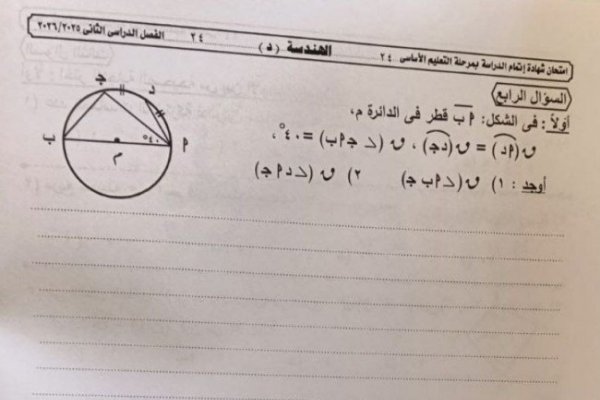 امتحان شهادة إتمام الدراسة بمرحلة التعليم الأساسى ٢٤ الهندسة ( د ) ٢٤ الفصل الدراسى الثانى ٢٠٢٦/٢٠٢٥
السؤال الرابع
أولاً : فى الشكل: أب قطر فى الدائرة م،
ق(أد) = ق(دجـ)، ق(> جـ أ ب) = ٤٠°،
أوجد : ١) ق(> أ ب جـ) ٢) ق(> د أ جـ)
جـ
د
ب
م
٤٠°
أ